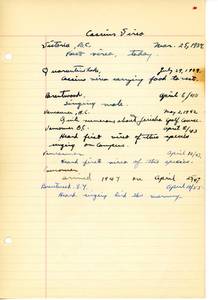 Cassins Vireo
Victoria, B.C. Mar. 28, 1939
First vireo, today
Quarantine Lake, July 29, 1939
Cassins vireo carrying food to nest.
Brentwood. April 6/40
Singing note.
Vancouver, B.C. May 2, 1942
Quite numerous about Jericho Golf Course.
Vancouver B.C. April 18/43
Heard first vireo of this species
singing on Campus.
Vancouver April
Heard first vireo of this species.
Vancouver
arrived 1947 on April
Brentwood. April
Heard singing bird this morning.